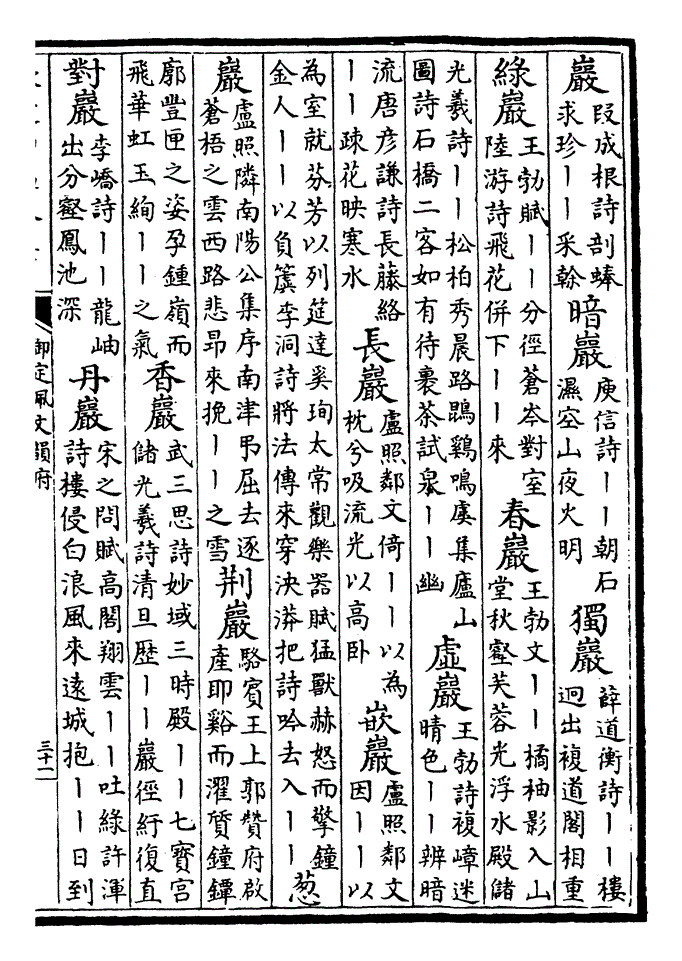 巖段成根詩剖蜯求珍丨丨采榦暗巖庾信詩丨丨朝石濕空山夜火明獨巖薛道衡詩丨丨樓迥出複道閣相重
綠巖王勃賦丨丨分徑蒼岑對室陸游詩飛花併下丨丨來春巖王勃文丨丨橘柚影入山堂秋壑芙蓉光浮水殿儲
光羲詩丨丨松柏秀晨路鵾鷄鳴虞集廬山圖詩石橋二客如有待裹茶試泉丨丨幽虛巖王勃詩複嶂迷晴色丨丨辨暗
流唐彦謙詩長藤絡丨丨疎花映寒水長巖盧照鄰文倚丨丨以為枕兮吸流光以高卧嵌巖盧照鄰文因丨丨以
為室就芬芳以列筵達奚珣太常觀樂器賦猛獸赫怒而擎鐘金人丨丨以負簴李洞詩將法傳來穿泱漭把詩吟去入丨丨葱
巖盧照隣南陽公集序南津弔屈去逐蒼梧之雲西路悲昂來挽丨丨之雪荆巖駱賓王上郭贊府啟產即谿而濯質鐘鐔
廓豐匣之姿孕鍾嶺而飛華虹玉絢丨丨之氣香巖武三思詩妙域三時殿丨丨七寶宫儲光羲詩清旦歷丨丨巖徑紆復直
對巖李嶠詩丨丨龍岫出分壑鳳池深丹巖宋之問賦高閣翔雲丨丨吐綠許渾詩樓侵白浪風來遠城抱丨丨日到
御定佩文韻府
三十一